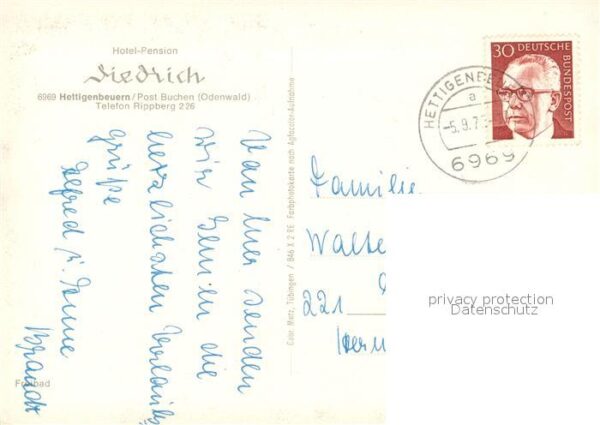 Hotel-Pension
Diedrich
6969 Hettigenbeuern/Post Buchen (Odenwald)
Telefon Rippberg 226
Von hier senden
wir Ihnen die
herzlichsten Urlaubs
grüße
Alfred u. Anne
Brandt
Freibad
Gebr. Metz, Tübingen / 846 X 2 RE Farbphotokarte nach Agfacolor-Aufnahme
30 DEUTSCHE
BUNDESPOST
HETTIGENBEU
a
-5.9.7
6969
Familie
Walte
221
privacy protection
Datenschutz